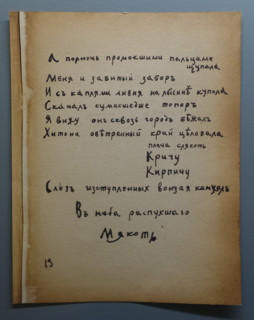 А полночь промокшими пальцами
щупала
Меня и забитый заборъ
И съ каплями ливня на лысинѣ купола
Скакалъ сумасшедше топоръ
Я вижу онъ сквозь городъ бѣжалъ
Хитона овѣтренный край цѣловала
плача слякоть
Кричу
Кирпичу
Слóвъ изступленныхъ вонзая кинжалъ
Въ неба распухшаго
Мякоть
13